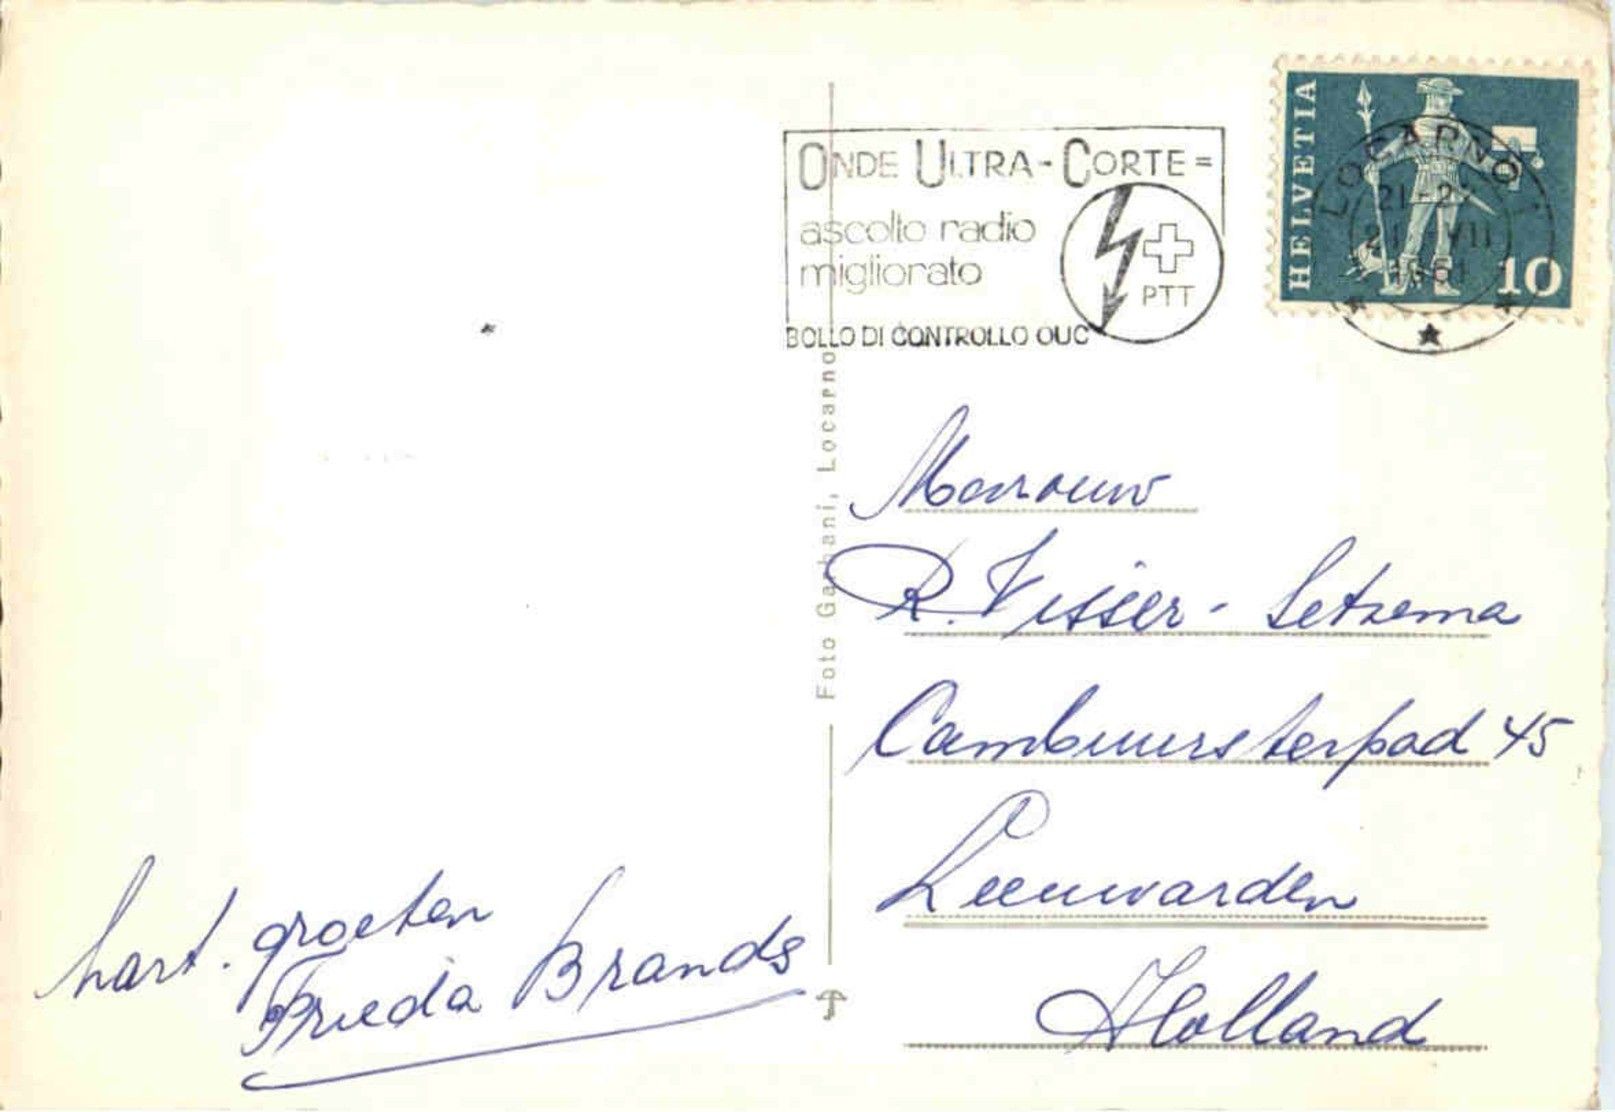 ONDE ULTRA-CORTE =
ascolto radio
migliorato
PTT
BOLLO DI CONTROLLO OUC
HELVETIA
10
LOCARNO 1
21-VII
1961
Foto Garbani, Locarno
Mevrouw
R. Visser - Setzema
Cambuursterpad 45
Leeuwarden
Holland
hart. groeten
Frieda Brands